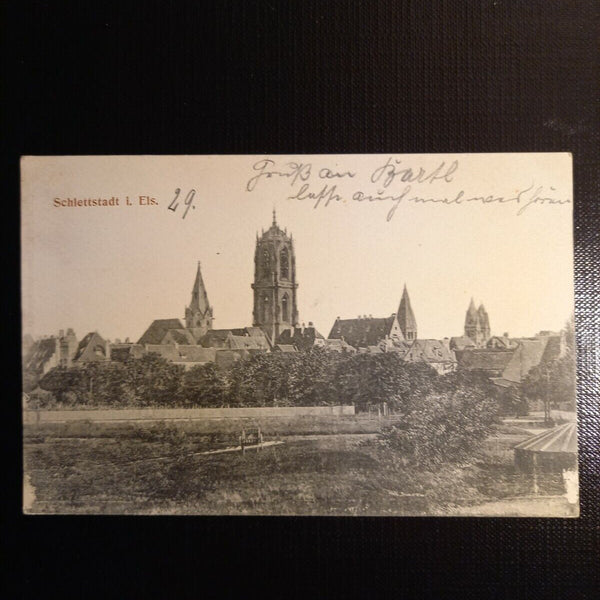 Schlettstadt i. Els. 29.
Gruß an Bartl
lass auch mal was hören